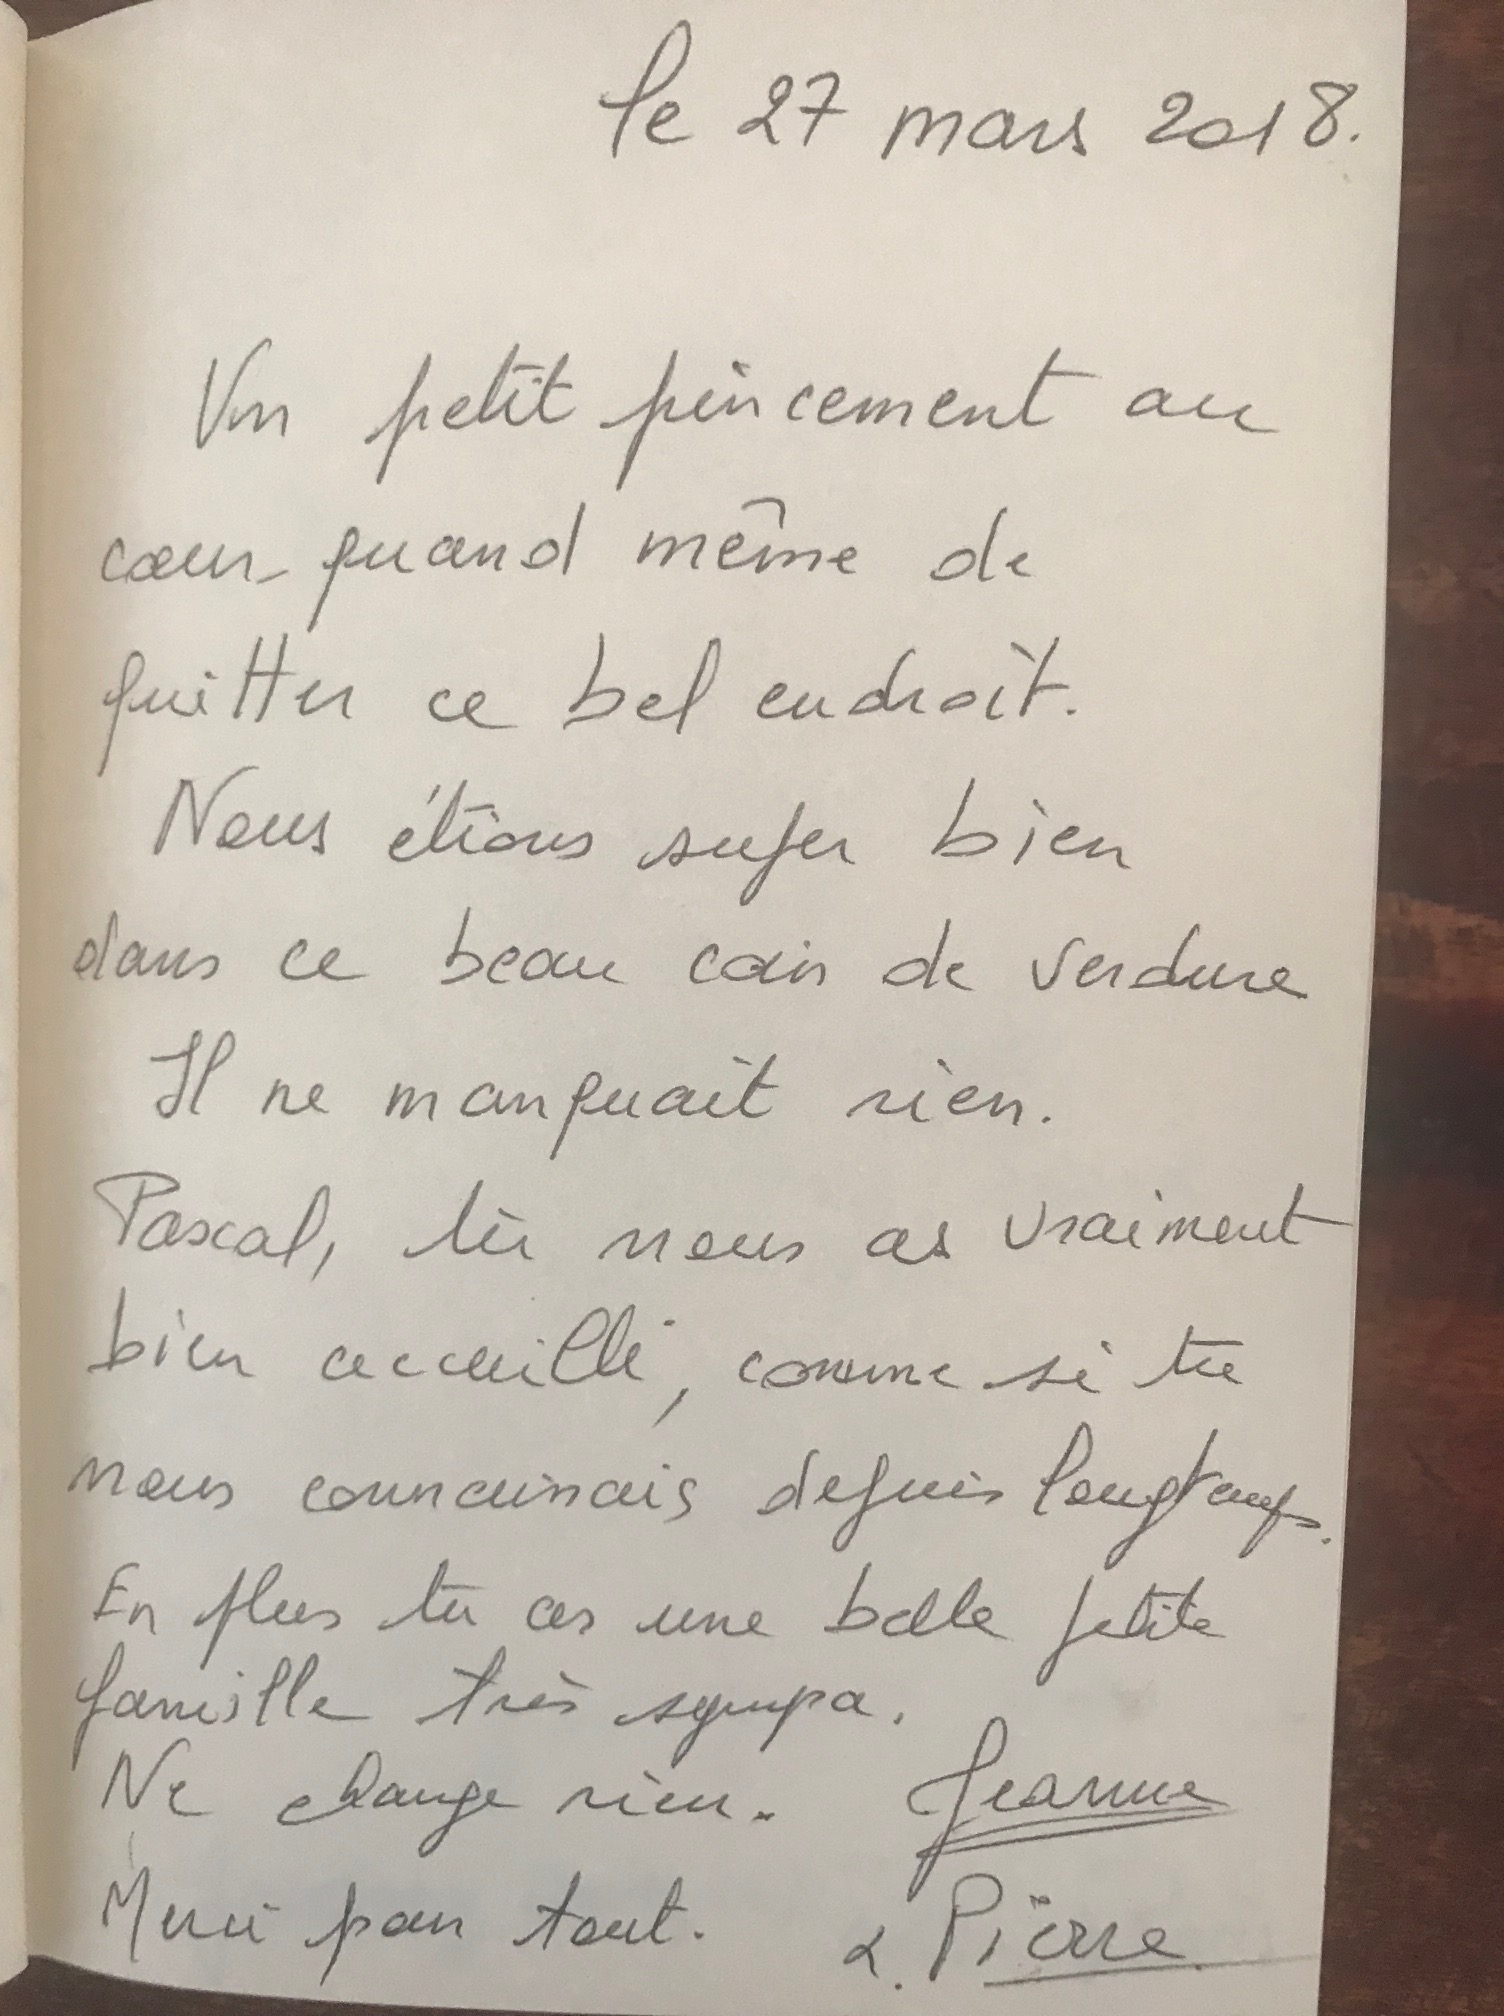 le 27 mars 2018.
Un petit pincement au
cœur quand même de
quitter ce bel endroit.
Nous étions super bien
dans ce beau coin de verdure
Il ne manquait rien.
Pascal, tu nous as vraiment
bien accueilli, comme si tu
nous connaissais depuis longtemps.
En plus tu as une belle petite
famille très sympa.
Ne change rien. Jeanne
Merci pour tout. &. Pierre